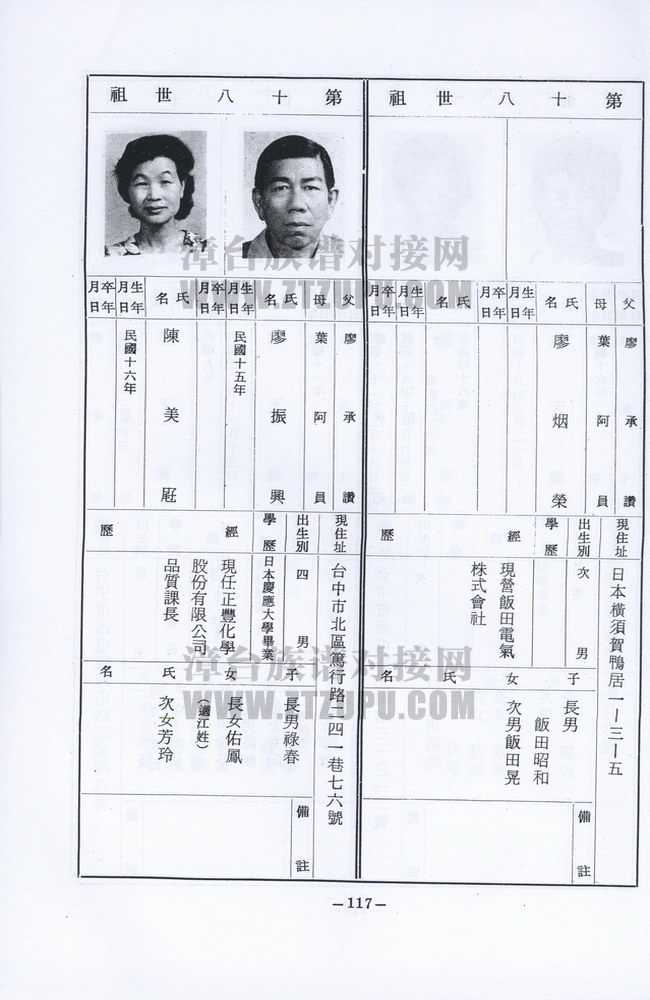 第十八世祖
父
母
氏名
生年月日
卒年月日
氏名
生年月日
卒年月日
廖承讚
葉阿員
廖烟榮
現住址
出生別
學歷
經歷
日本橫須賀鴨居一—三—五
次男
現營飯田電氣
株式會社
子女氏名
長男
飯田昭和
次男飯田晃
備註
第十八世祖
父
母
氏名
生年月日
卒年月日
氏名
生年月日
卒年月日
廖承讚
葉阿員
廖振興
民國十五年
陳美
民國十六年
現住址
出生別
學歷
經歷
台中市北區篤行路二四一巷七六號
四男
日本慶應大學畢業
現任正豐化學
股份有限公司
品質課長
子女氏名
長男祿春
長女佑鳳
（適江姓）
次女芳玲
備註
—117—
漳台族谱对接网
WWW.ZTZUPU.COM
漳台族谱对接网
WWW.ZTZUPU.COM